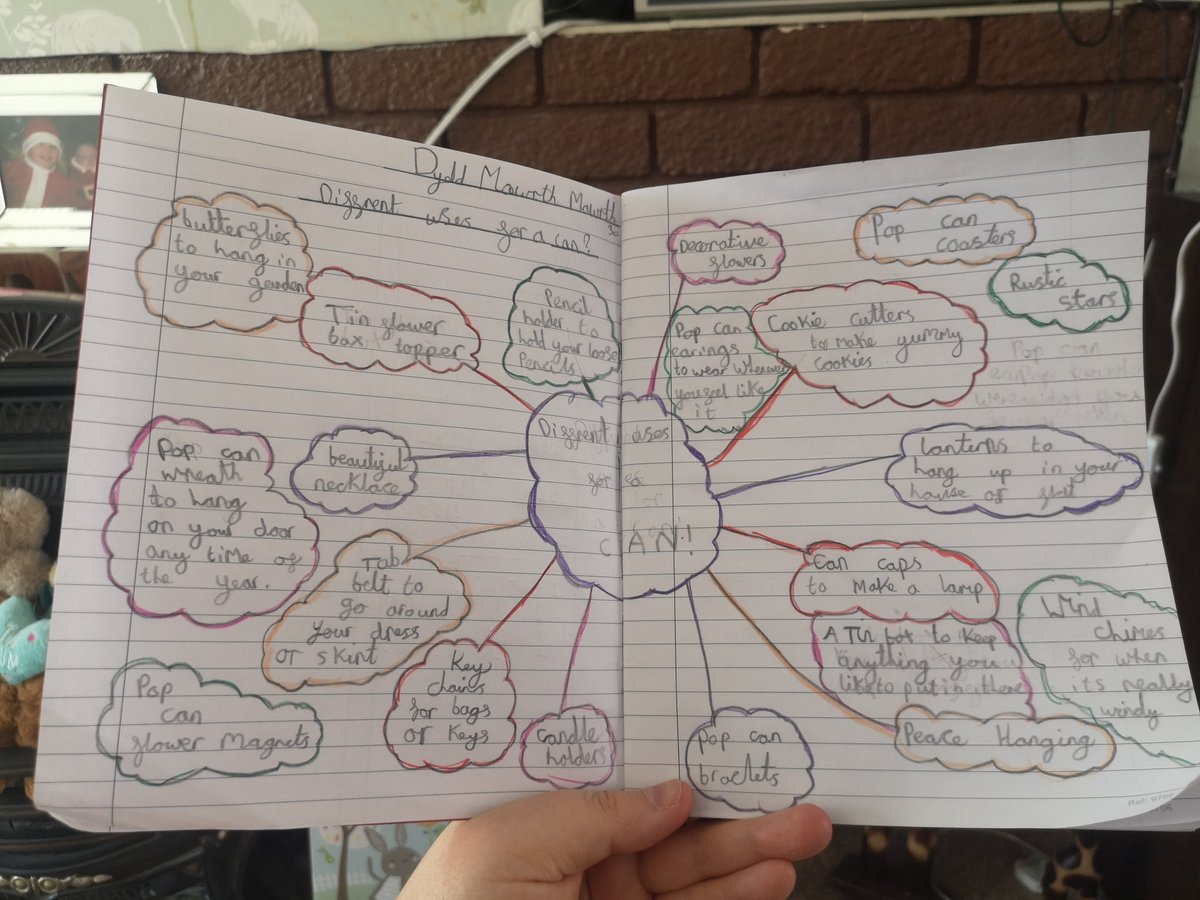 Dydd Mawrth Mawrth
30
Diffrent uses for a can?
butterflies
to hang in
your garden
Tin flower
box topper
Pencil
holder to
hold your loose
Pencils
Pop can
wreath
to hang
on your door
any time of
the year.
beautiful
necklace
Tab
belt to
go around
your dress
or skirt
Pop
can
flower Magnets
Key
chains
for bags
or keys
Candle
holders
Diffrent uses
for a
CAN!
Decorative
flowers
Pop can
coasters
Rustic
stars
Pop can
earings
to wear whenever
you feel like
it
Cookie cutters
to make yummy
cookies.
Pop can
lanterns to
hang up in your
house or flat
Can caps
to make a lamp
A Tin box to keep
anything you
like to put in there
Wind
chimes
for when
its really
windy
Peace Hanging
Pop can
braclets
Ref: 9706